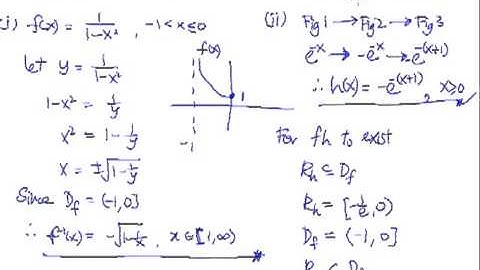 (i) f(x) = 1/(1-x²), -1<x≤0
let y = 1/(1-x²)
1-x² = 1/y
x² = 1 - 1/y
x = ±√(1-1/y)
Since D_f = (-1, 0]
∴ f⁻¹(x) = -√(1-1/x), x∈[1,∞)
f(x)
1
-1
(ii) Fig 1 → Fig 2 → Fig 3
e^-x → -e^-x → -e^-(x+1)
∴ h(x) = -e^-(x+1), x≥0
For fh to exist
R_h ⊆ D_f
R_h = [-1/e, 0)
D_f = (-1, 0]